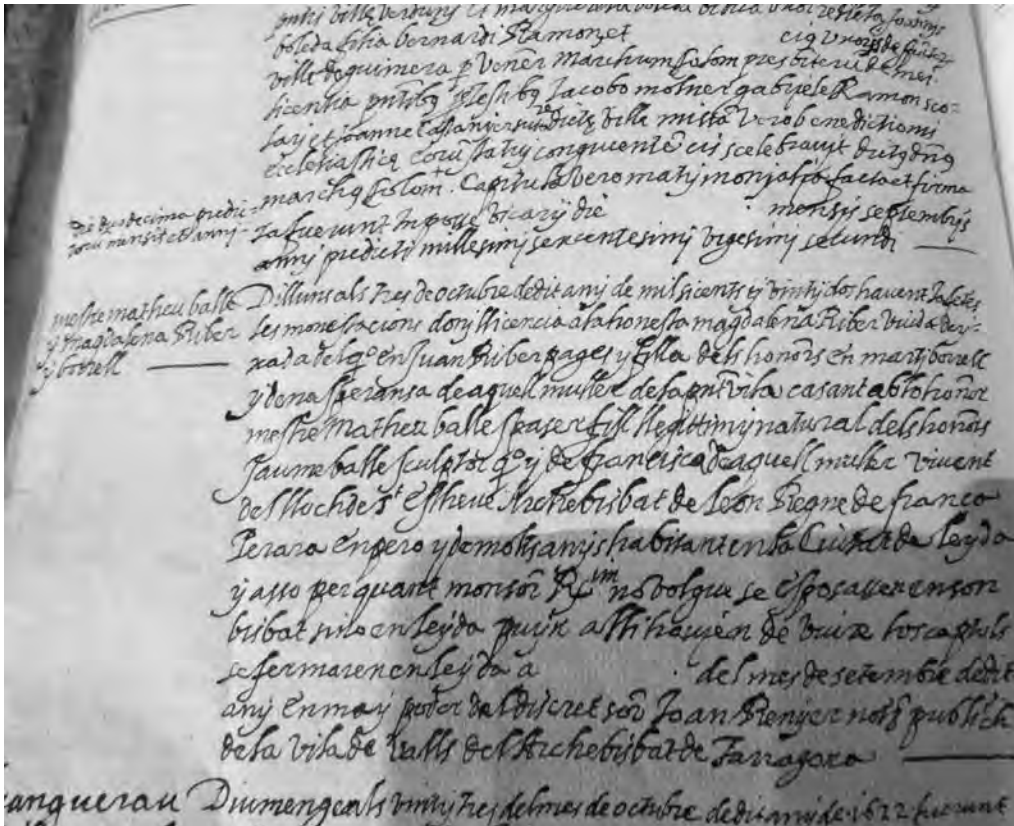 boleda filia bernardi Ramonet
ville de guimera p Vener Marchum solom presbiterũ de mei
licentia pntibq Iacobo molner gabriele Ramon sco-
lary et joanne dictę ville missa vero benedictioni
ecclesiastice congruente eis celebravit dictq dnq
marchq solom. Capitula vero matrimonialia facta et firma
ta fuerunt In posse vicarij die mensis septembris
anni predicti millesimi sexcentesimi vigesimi secundi
Die duodecima predic-
torũ mensis et anni
mestre matheu balle
y magdalena Riber
y borrell
Dilluns als tres de octubre de dit any de mil sicents y vinty dos havent
les monestacions doni llicencia a la honesta magdalena Riber viuda de-
xada del qº en Juan Riber pages y filla dels honors en marti borrell
y dona speransa de aquell muller de la pnt vila casant ab lo honor
mestre Matheu balle fill llegittim y natural dels honors
Jaume balle sculptor qº y de francisca de aquell muller vivent
del lloch de st Esteve Archebisbat de leon Regne de franca
Perara empero y de molts anys habitant en la Ciutat de leyda
y asso per quant monsor Rim no volgue se esposassen en son
bisbat sino en leyda puix alli havien de viure los capitols
se fermaren en leyda a del mes de setembre de dit
any en ma y poder del discret sor Joan Renyer nott publich
de la vila de valls del Archebisbat de Tarragona
Diumenge als vint y tres del mes de octubre de dit any de 1622 fuerunt